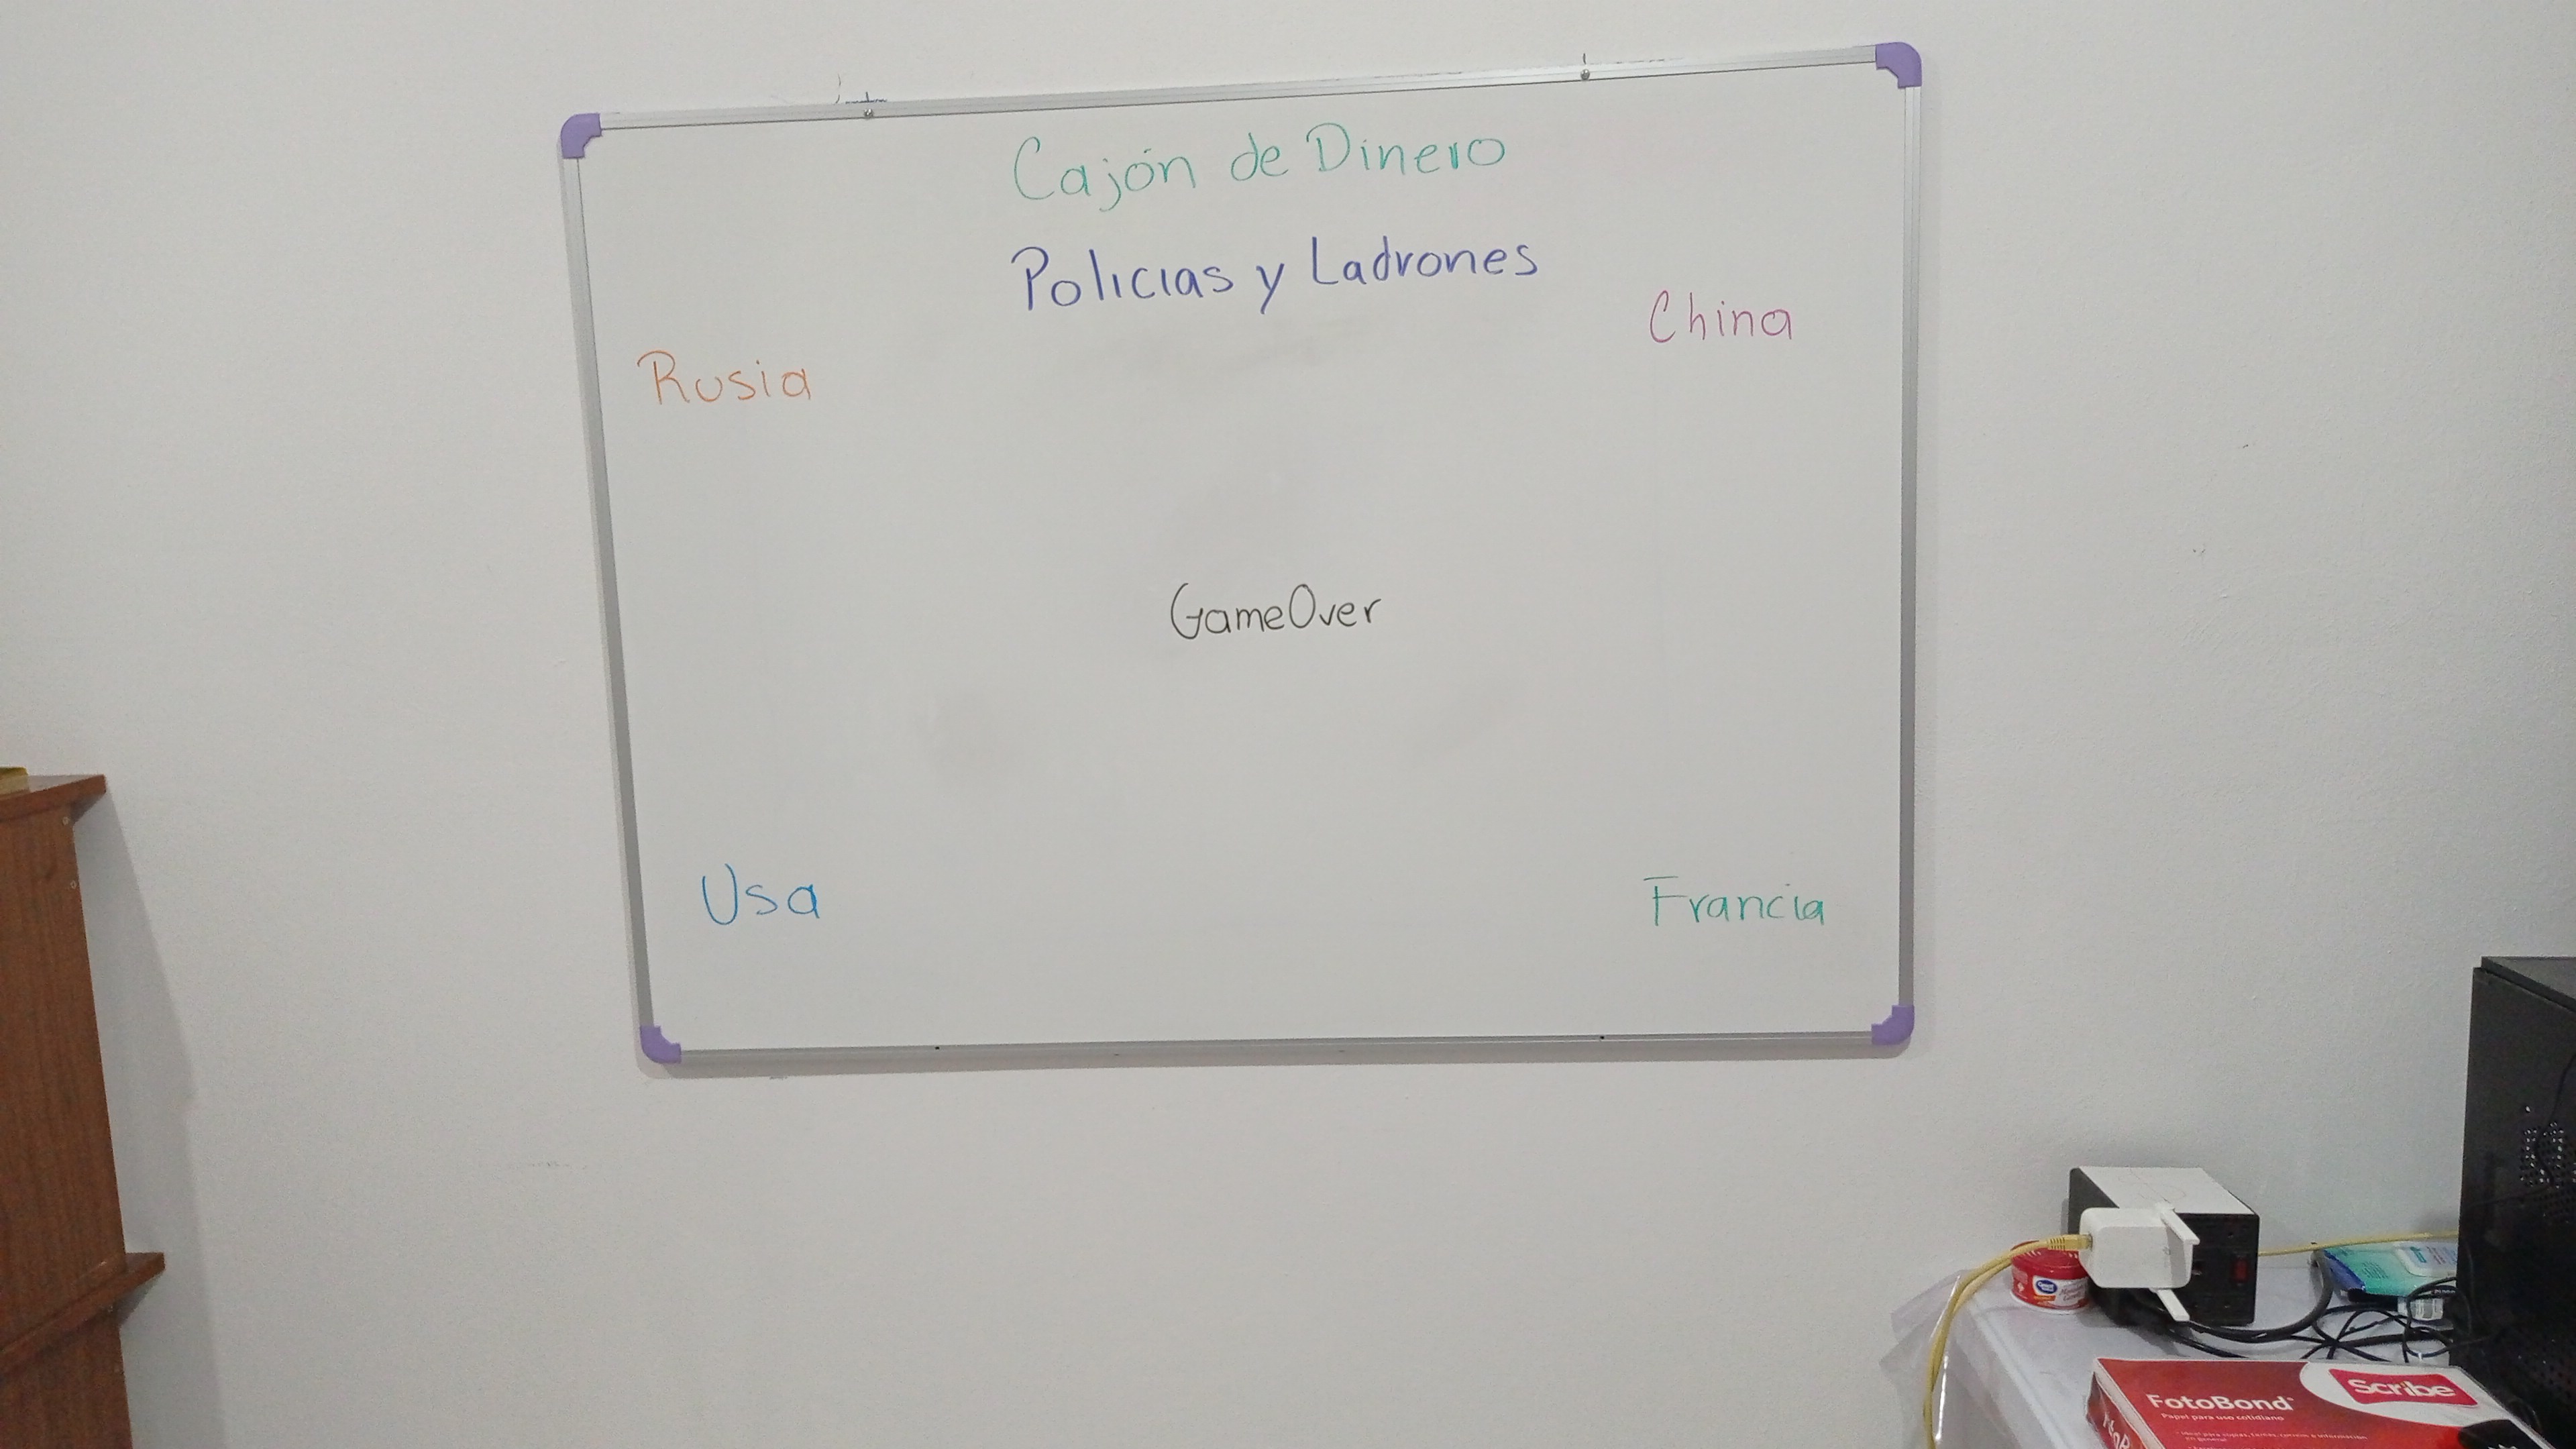 Cajón de Dinero
Policias y Ladrones
China
Rusia
GameOver
Usa
Francia
Scribe
FotoBond
Papel para uso cotidiano